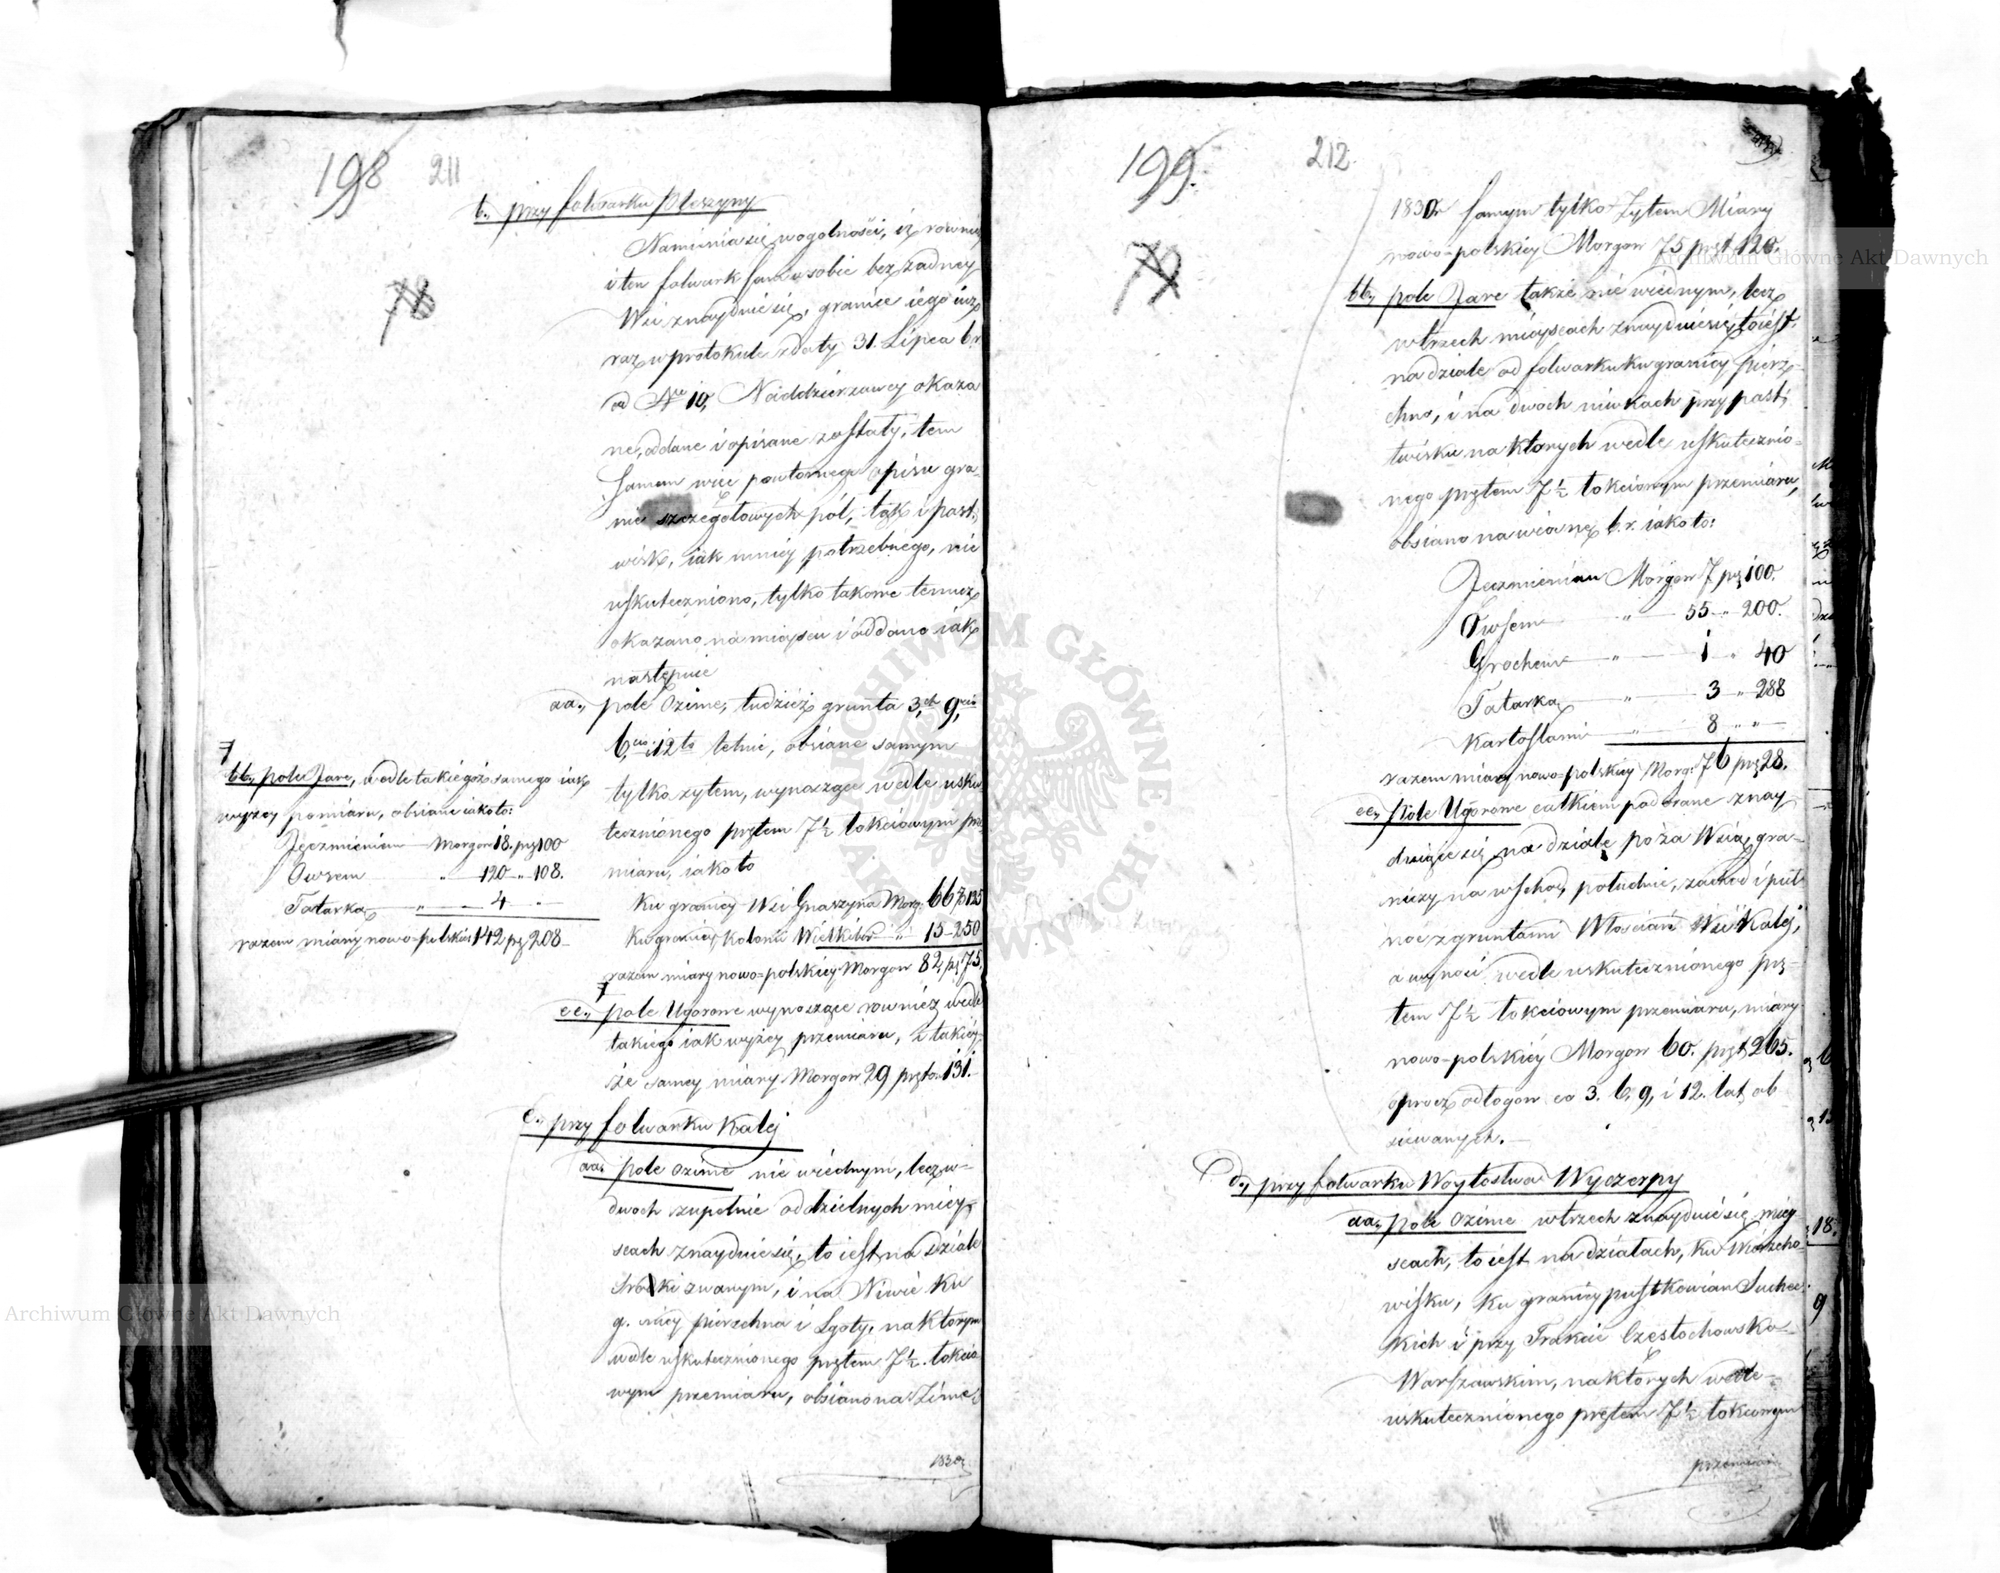 198 211
b., przy folwarku Błeszyny
Namienia się w ogolności, iż rownież
i ten folwark sam w sobie bez żadney
Wsi znayduie się, granice iego iuż
raz w protokule z daty 31. Lipca b.r.
ad Nro 10, Naddzierzawcy okaza
ne, oddane i opisane zostały, tem
samem więc powtornego opisu gra
nic szczegołowych pól, łąk i past
wisk, iak mniey potrzebnego, nie
uskuteczniono, tylko takowe temuż
okazano na mieyscu i oddano iak
następuie
aa., pole Ozime, tudzież grunta 3ch, 9cio
6cio i 12to letnie, obsiane samym
tylko żytem, wynoszące wedle usku
tecznionego prętem 7½ łokciowym prze
miaru, iako to
Ku granicy Wsi Gnaszyna Morg. 66 125
Ku granicy Kolonii Wielkibor " 15 - 250
razem miary nowo=polskiey Morgow 82, pr. 75.
7
bb., pole Jare, wedle takiegoż samego iak
wyżey pomiaru, obsiane iako to:
Jęczmieniem Morgow 18. prę 100
Owsem " 120 " 108.
Tatarką " 4 "
razem miary nowo=polskiey 142 prę 208
7
cc., pole Ugorowe wynoszące rownież wedle
takiego iak wyżey przemiaru, z takiey
że samey miary Morgow 29 prętow 131.
c., przy folwarku Kalej
aa. pole Ozime nie w iednym, lecz w
dwoch zupełnie oddzielnych miey
scach znayduie się, to iest na dziale
zwanym, i na Niwie ku
g. nicy Pierzchna i Lgoty, na ktorym
wedle uskutecznionego prętem 7½ łokcio
wym przemiaru, obsiano na Zimę
1830r
199. 212
1830r samym tylko Żytem Miary
nowo=polskiey Morgow 75 pręt 120.
bb., pole Jare także nie w iednym, lecz
w trzech mieyscach znayduie się, to iest.
na dziale od folwarku ku granicy Pierz=
chno, i na dwoch niwkach przy past
wisku na ktorych wedle uskutecznio=
nego prętem 7½ łokciowym przemiaru,
obsiano na wiosnę b.r. iako to:
Jęczmieniem Morgow 7 prę 100.
Owsem " 55 " 200.
Grochem " 1 " 40
Tatarką " 3 " 288
Kartoflami " 8 " "
razem miary nowo=polskiey Morg. 76 prę 28.
cc., Pole Ugorowe całkiem podorane znay=
duiące się na dziale poza Wsią, gra=
niczy na wschod, południe, zachod i puł
noc z gruntami Włościan Wsi Kalej,
a wynosi wedle uskutecznionego prę=
tem 7½ łokciowym przemiaru, miary
nowo=polskiéy Morgow 60. pręt. 265.
oprocz odłogow co 3. 6. 9, i 12. lat ob
siewanych.
d., przy folwarku Woytostwa Wyczerpy
aa., pole Ozime w trzech znayduie się miey
scach, to iest na działach, ku Wierzcho=
wisku, ku granicy pustkowian
kich i przy Trakcie Częstochowsko=
Warszawskim, na ktorych wedle
uskutecznionego prętem 7½ łokciowym
przemiaru
Archiwum Główne Akt Dawnych
Archiwum Główne Akt Dawnych
ARCHIWUM GŁÓWNE AKT DAWNYCH